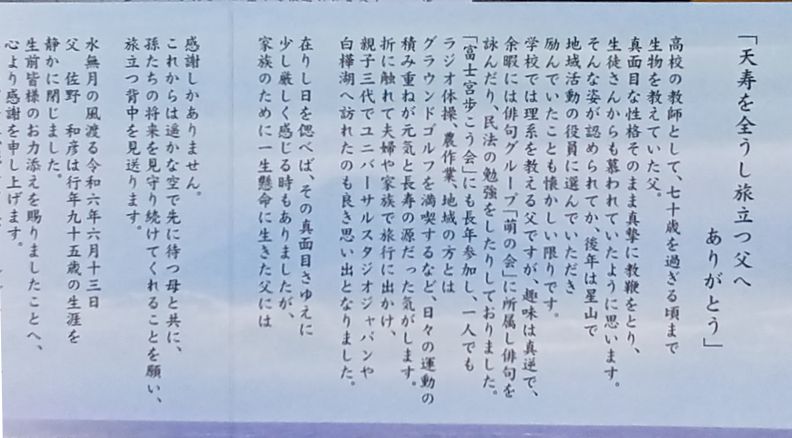 「天寿を全うし旅立つ父へ
ありがとう」
高校の教師として、七十歳を過ぎる頃まで
生物を教えていた父。
真面目な性格そのまま真摯に教鞭をとり、
生徒さんからも慕われていたように思います。
そんな姿が認められてか、後年は星山で
地域活動の役員に選んでいただき
励んでいたことも懐かしい限りです。
学校では理系を教える父ですが、趣味は真逆で、
余暇には俳句グループ「萌の会」に所属し俳句を
詠んだり、民法の勉強をしたりしておりました。
「富士宮歩こう会」にも長年参加し、一人でも
ラジオ体操、農作業、地域の方とは
グラウンドゴルフを満喫するなど、日々の運動の
積み重ねが元気と長寿の源だった気がします。
折に触れて夫婦や家族で旅行に出かけ、
親子三代でユニバーサルスタジオジャパンや
白樺湖へ訪れたのも良き思い出となりました。
在りし日を偲べば、その真面目さゆえに
少し厳しく感じる時もありましたが、
家族のために一生懸命に生きた父には
感謝しかありません。
これからは遥かな空で先に待つ母と共に、
孫たちの将来を見守り続けてくれることを願い、
旅立つ背中を見送ります。
水無月の風渡る令和六年六月十三日
父 佐野 和彦は行年九十五歳の生涯を
静かに閉じました。
生前皆様のお力添えを賜りましたことへ、
心より感謝を申し上げます。